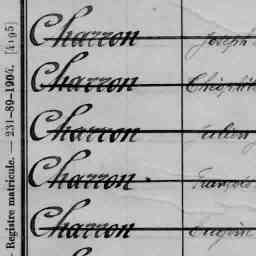 Charron Joseph
Charron
Charron Julien
Charron François
Charron Eugène
Registre matricule. — 231-89-1907. [4195]